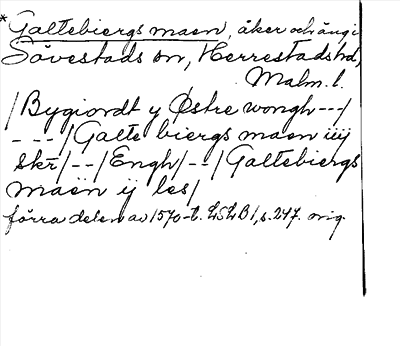 *Galtebiergs maen, åker och äng i
Sövestads sn, Herrestads hd,
Malm. l.
/Bygiordt y Østre wongh---/
- - -/Galte biergs maen iiij
skr/--/Engh/--/Galtebiergs
maen ij les/
förra delen av 1570-t. LSLB1, s. 247. orig.